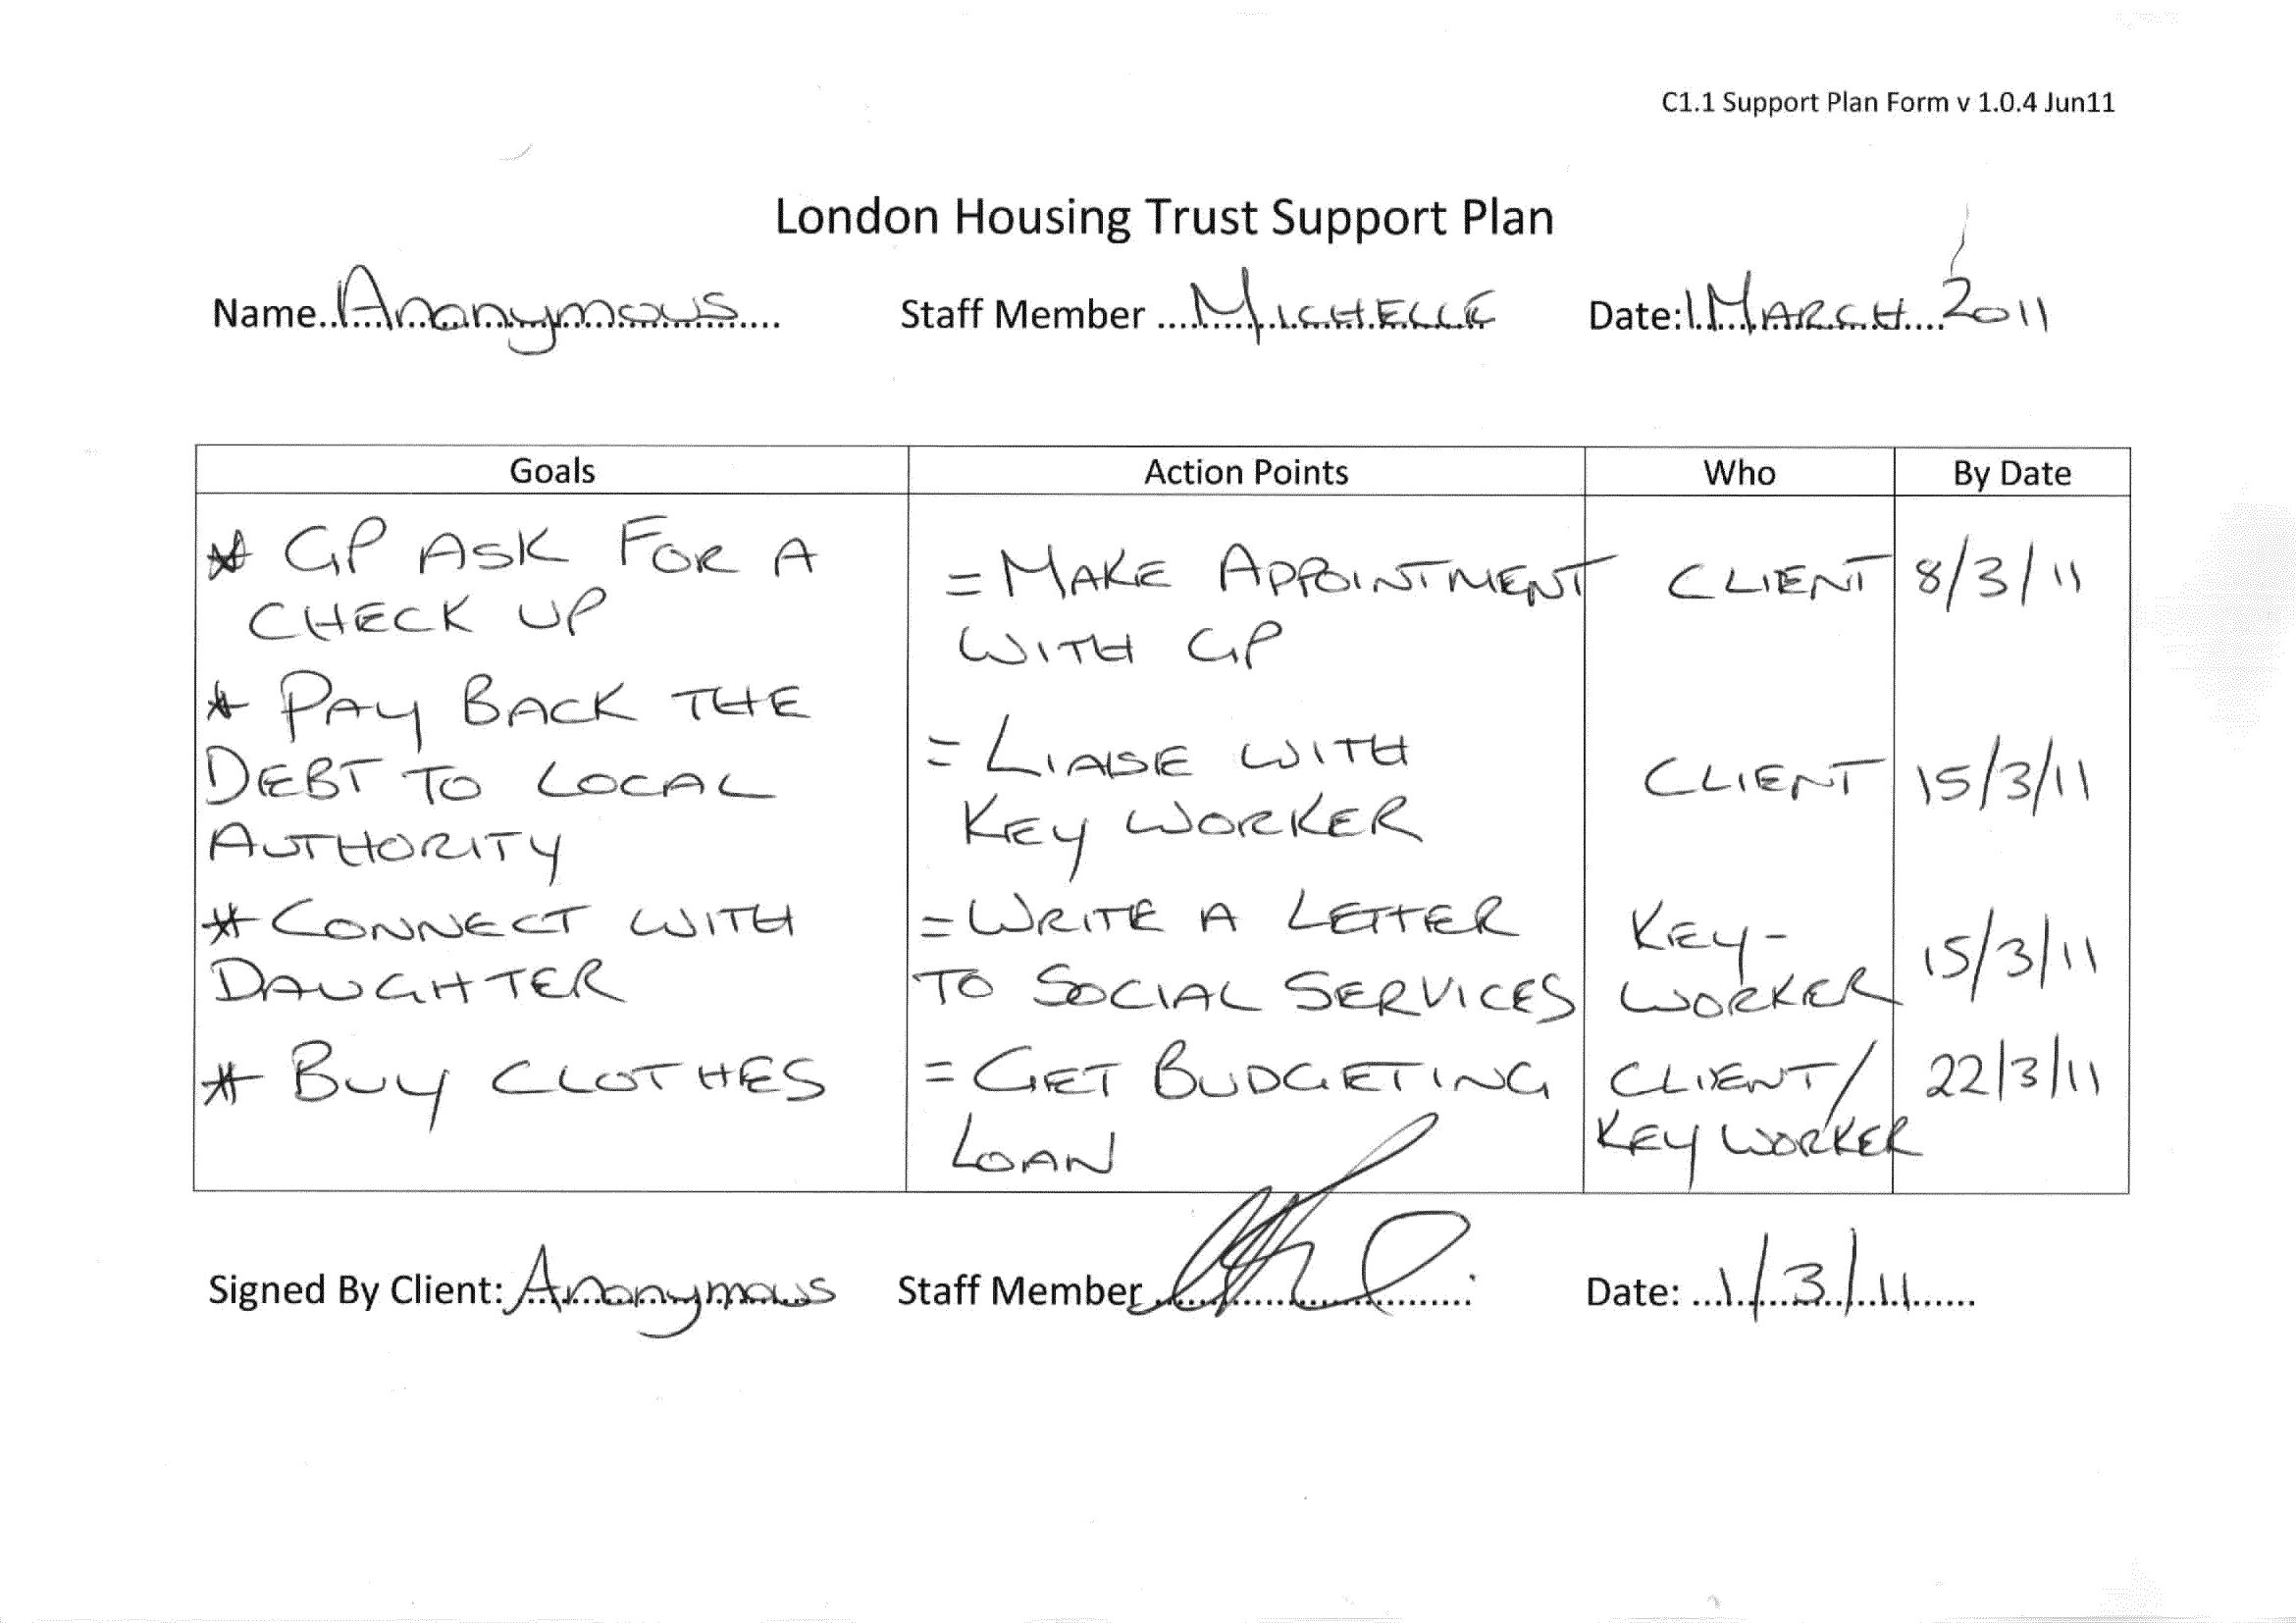 C1.1 Support Plan Form v 1.0.4 Jun11
London Housing Trust Support Plan
Name..Anonymous.... Staff Member ....MICHELLE Date:1 MARCH 2011
Goals Action Points Who By Date
* GP ASK FOR A
CHECK UP
= MAKE APPOINTMENT
WITH GP
CLIENT 8/3/11
* PAY BACK THE
DEBT TO LOCAL
AUTHORITY
= LIAISE WITH
KEY WORKER
CLIENT 15/3/11
* CONNECT WITH
DAUGHTER
= WRITE A LETTER
TO SOCIAL SERVICES
KEY-
WORKER
15/3/11
* BUY CLOTHES
= GET BUDGETING
LOAN
CLIENT/
KEY WORKER
22/3/11
Signed By Client: Anonymous Staff Member Date: ...1/3/11......